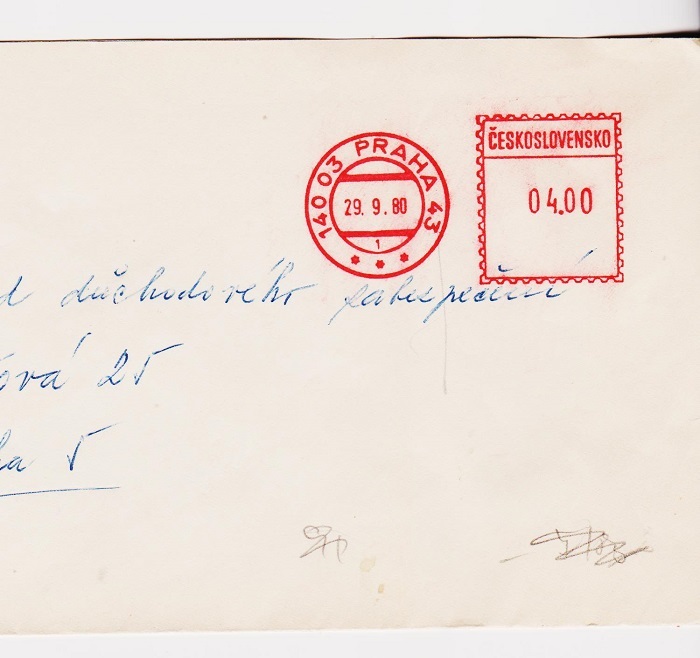 ČESKOSLOVENSKO
140 03 PRAHA 43
04.00
29. 9. 80
1
d důchodového zabezpečení
ová 25
ha 5